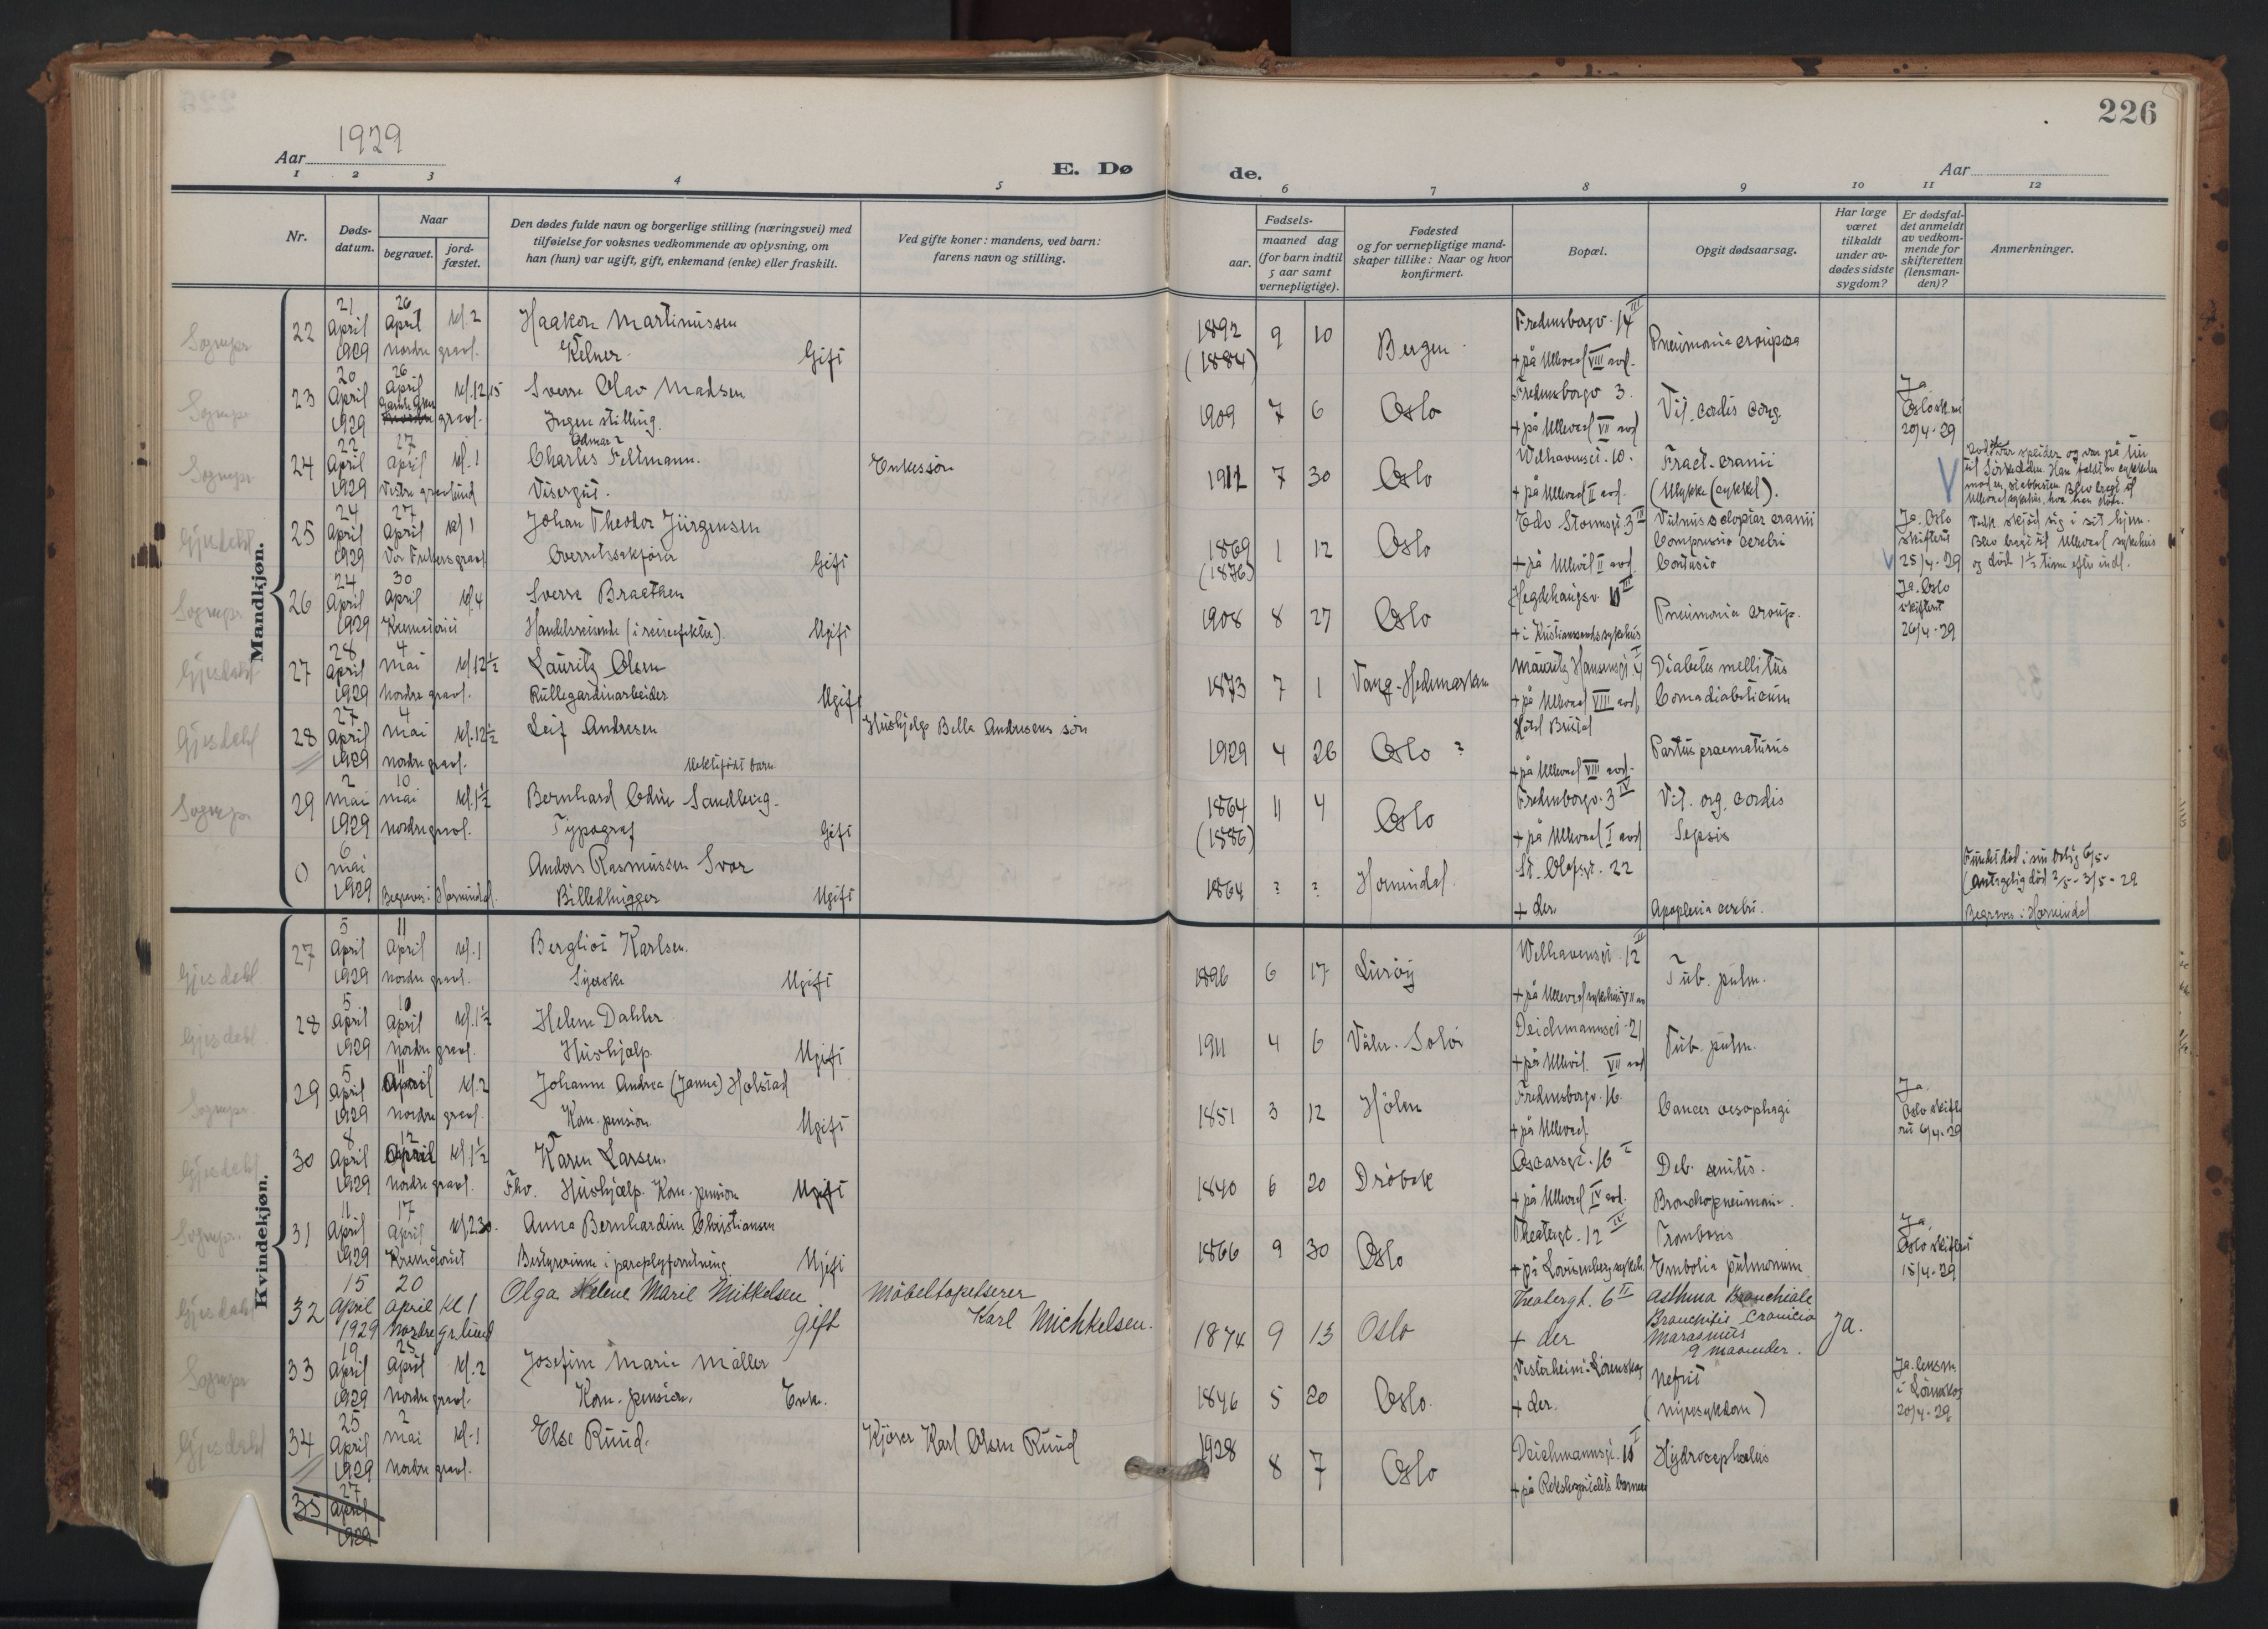 226
Aar 1929
E. Døde.
Aar
1 2 3 4 5 6 7 8 9 10 11 12
Nr.
Døds-
datum.
Naar
begravet.
jord-
fæstet.
Den dødes fulde navn og borgerlige stilling (næringsvei) med
tilføielse for voksnes vedkommende av oplysning, om
han (hun) var ugift, gift, enkemand (enke) eller fraskilt.
Ved gifte koner: mandens, ved barn:
farens navn og stilling.
Fødsels-
aar.
maaned dag
(for barn indtil
5 aar samt
vernepligtige).
Fødested
og for vernepligtige mand-
skaper tillike: Naar og hvor
konfirmert.
Bopæl.
Opgit dødsaarsag.
Har læge
været
tilkaldt
under av-
dødes sidste
sygdom?
Er dødsfal-
det anmeldt
av vedkom-
mende for
skifteretten
(lensman-
den)?
Anmerkninger.
Mandkjøn.
Sognepr
22
21 April 1929
26 April kl. 2
Nordre gravl.
Haakon Martinussen
Kelner. Gift
1892 9 10
(1884)
Bergen
Fredensborgv. 14 III
+ på Ullevaal VIII avd.
Pneumonia crouposa
Sognepr
23
20 April 1929
26 April kl. 12,15
Gamle Aker gravl.
Sverre Olav Madsen
Ingen stilling.
1909 7 6
Oslo
Fredensborgv 3.
+ på Ullevaal VII avd
Vit. cordis cong
Ja
20/4-29
Sognepr
24
22 April 1929
27 April kl. 1
Vestre gravlund
Odmar?
Charles Feltmann.
Visergut.
Enkessøn
1912 7 30
Oslo
Welhavensgt. 10.
+ på Ullevaal II avd.
Fract. cranii
(Ulykke (cykkel).
V
Gjesdahl
25
24 April 1929
27 April kl 1
Vor Frelsers gravl
Johan Theodor Jürgensen
Overretssakfører Gift
1869 1 12
(1876)
Oslo
Edv Stormsgt. 3 III
+ på Ullevål II avd.
Vulnus sclopetar cranii
Compressio cerebri
Contusio
V
Ja. Oslo
skifteret
25/4-29
Vedk. skjød sig i sit hjem.
Blev bragt til Ullevaal sykehus
og død 1½ time efter indl.
Sognepr
26
24 April 1929
30 April kl. 4
Krematoriet
Sverre Braathen
Handelsreisende (i reiseeffekter). Ugift
1908 8 27
Oslo
Hegdehaugsv. 10 III
+ i Kristiansands sykehus
Pneumonia croup.
Ja. Oslo
skifteret
26/4-29
Gjesdahl
27
28 April 1929
4 Mai kl 12½
Nordre gravl.
Lauritz Olsen
Rullegardinarbeider Ugift
1873 7 1
Vang. Hedemarken
Mauritz Hansensgt. 4 I
+ på Ullevaal VIII avd.
Diabetes mellitus
Coma diabeticum
Gjesdahl
28
27 April 1929
4 Mai kl. 12½
Nordre gravl.
Leif Andresen
Uektefødt barn
Hushjelp Bella Andresens søn
1929 4 26
Oslo ?
Hotel Bristol
+ på Ullevaal VIII avd.
Partus praematurus
Sognepr
29
2 Mai 1929
10 Mai kl. 1½
Nordre gravl.
Bernhard Odin Sandberg.
Typograf Gift
1864 11 4
(1886)
Oslo
Fredensborgv. 3 IV
+ på Ullevaal I avd
Vit. org. cordis
Sepsis
0
6 Mai 1929
Begraves i Hornindal.
Anders Rasmussen Svor
Billedhugger Ugift
1864 ? ?
Hornindal.
St. Olafsgt. 22
+ der.
Apoplexia cerebri.
Fundet død i sin bolig 6/5-
(Antagelig død 2/5 - 3/5 - 29
Begraves i Hornindal
Kvindekjøn.
Gjesdahl.
27
5 April 1929
11 April kl. 1
Nordre gravl.
Bergliot Karlsen.
Syerske Ugift
1896 6 17
Lurøy
Welhavensgt. 12 II
+ på Ullevaal sykehus VII av
Tub. pulm.
Gjesdahl.
28
5 April 1929
10 April kl. 1½
Nordre gravl.
Helene Dahler
Hushjælp. Ugift
1911 4 6
Våler. Solør
Deichmannsgt. 21
+ på Ullevål. VII avd
Tub. pulm.
Sognepr.
29
5 April 1929
11 April kl. 2
Nordre gravl.
Johanne Andrea (Janna) Holstad
Kom. pension. Ugift
1851 3 12
Hølen
Fredensborgv. 16.
+ på Ullevaal
Cancer oesophagi
Ja.
Oslo skifte
ret 6/4-29
Gjesdahl
30
8 April 1929
12 April kl 1½
Nordre gravl.
Karen Larsen.
Fhv. Hushjælp. Kom. pension Ugift
1840 6 20
Drøbak
Oscarsgt. 16 I
+ på Ullevaal IV avd.
Deb. senilis.
Bronchopneumoni.
Sognepr.
31
11 April 1929
17 April kl 2.30.
Krematoriet
Anna Bernhardine Christiansen
Bestyrerinne i paraplyforretning Ugift
1866 9 30
Oslo
Theatergt. 12 IV
+ på Lovisenberg sykeh.
Trombosis
Embolia pulmonum
Ja,
Oslo skifteret
15/4-29
Gjesdahl
32
15 April 1929
20 April kl 1
Nordre gr. lund
Olga Helene Marie Mikkelsen
Gift
Møbeltapetserer
Karl Michkelsen.
1874 9 13
Oslo
Theatergt. 6 II
+ der
Asthma Bronchiale
Bronchitis Cronicia
Marasmus
9 maaneder.
Ja.
Sognepr
33
19 April 1929
25 April kl. 2
Nordre gravl.
Josefine Marie Møller
Kom. pension. Enke.
1846 5 20
Oslo.
Vesterheim. Lørenskog
+ der.
Nefrit
(nyresykdom)
Ja. lensm.
i Lørenskog
20/4-29
Gjesdahl
34
25 April 1929
2 Mai kl. 1
Nordre gravl.
Else Ruud.
Kjører Karl Olsen Ruud
1928 8 7
Oslo
Deichmannsgt. 10 I
+ på Rikshospitalets barneavd
Hydrocephalus
35
27 April 1929